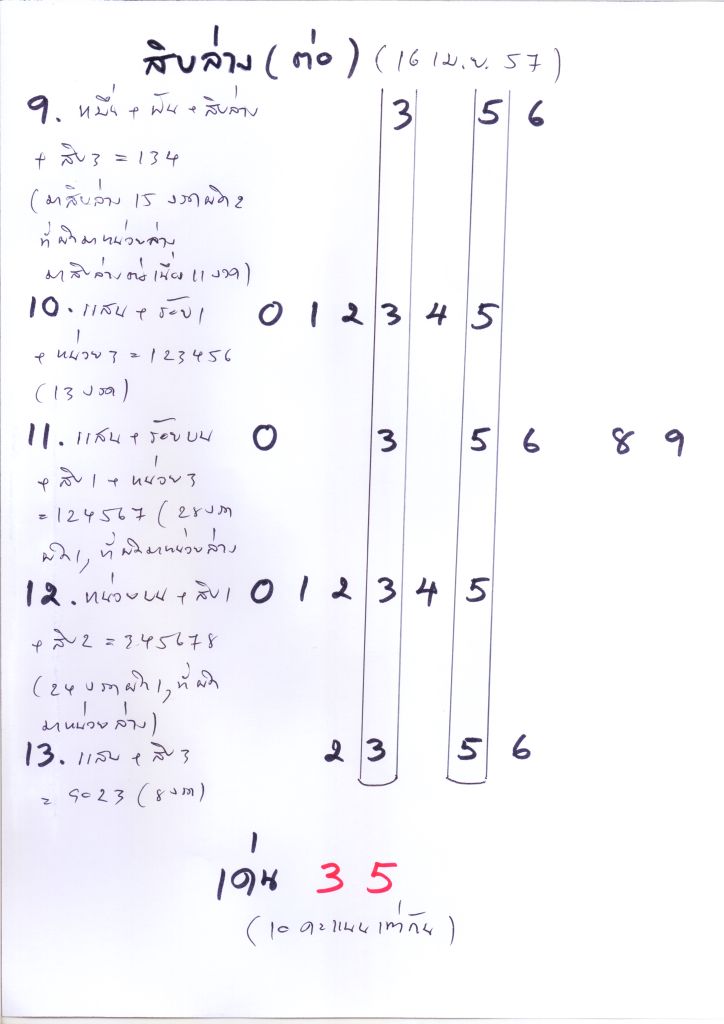 สิบล่าง (ต่อ) (16 เม.ย. 57)
9. หมื่น + พัน + สิบล่าง 3 5 6
+ สิบ 3 = 134
(มาสิบล่าง 15 งวดผิด 2
ที่ผิดมาหน่วยล่าง
มาสิบล่างต่อเนื่อง 11 งวด)
10. แสน + ร้อย 1 0 1 2 3 4 5
+ หน่วย 3 = 123456
(13 งวด)
11. แสน + ร้อยบน 0 3 5 6 8 9
+ สิบ 1 + หน่วย 3
= 124567 (28 งวด
ผิด 1, ที่ผิดมาหน่วยล่าง
12. หน่วยบน + สิบ 1 0 1 2 3 4 5
+ สิบ 2 = 345678
(24 งวดผิด 1, ที่ผิด
มาหน่วยล่าง)
13. แสน + สิบ 3 2 3 5 6
= 9023 (8 งวด)
เด่น 3 5
(10 คะแนนเท่ากัน)